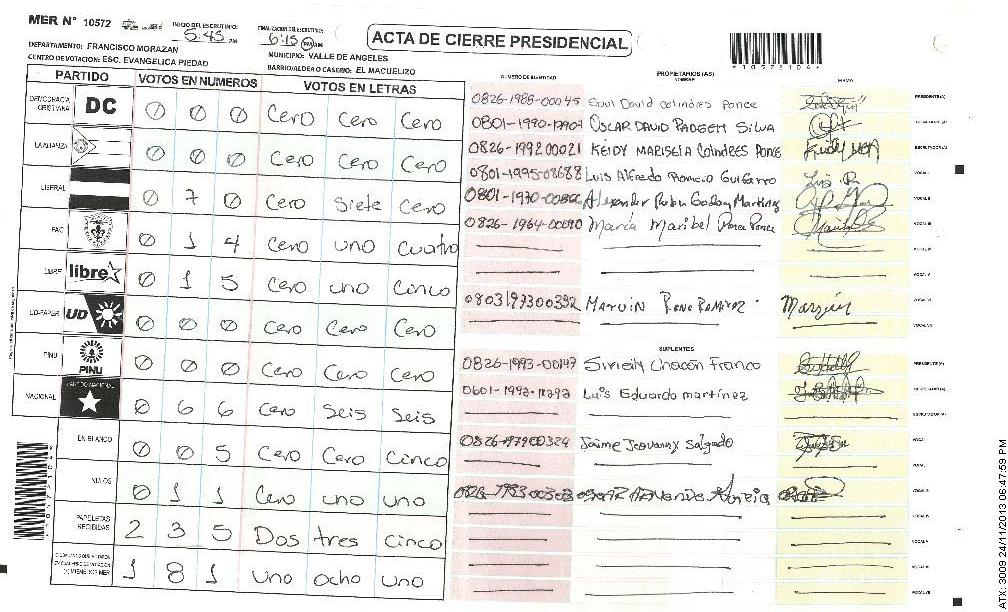 MER N° 10572
INICIO DEL ESCRUTINIO: 5:45 PM
FINALIZACION DEL ESCRUTINIO: 6:15 PM AM
ACTA DE CIERRE PRESIDENCIAL
*10572104*
DEPARTAMENTO: FRANCISCO MORAZAN
MUNICIPIO: VALLE DE ANGELES
CENTRO DE VOTACION: ESC. EVANGELICA PIEDAD
BARRIO/ALDEA O CASERIO: EL MACUELIZO
PARTIDO VOTOS EN NUMEROS VOTOS EN LETRAS
NUMERO DE IDENTIDAD PROPIETARIOS (AS) NOMBRE FIRMA
DEMOCRACIA CRISTIANA DC 0 0 0 Cero Cero Cero
LA ALIANZA 0 0 0 Cero Cero Cero
LIBERAL 0 7 0 Cero Siete Cero
PAC 0 1 4 Cero uno cuatro
LIBRE libre 0 1 5 Cero uno cinco
UD-FAPER UD 0 0 0 Cero Cero Cero
PINU PINU 0 0 0 Cero Cero Cero
NACIONAL 0 6 6 Cero Seis Seis
EN BLANCO 0 0 5 Cero Cero Cinco
NULOS 0 1 1 Cero uno uno
PAPELETAS RECIBIDAS 2 3 5 Dos tres cinco
1 8 1 uno ocho uno
0826-1988-00045 Saul David Colindres Ponce PRESIDENTE(A)
OSCAR DAVID PADGETT SILVA
0826-199200021 KEIDY MARISELA COlindRES PONCE
0801-1995-08688 Luis Alfredo Romero VOCAL I
Alexander Godoy Martinez VOCAL II
0826-1964-00090 María Maribel Ponce Ponce VOCAL III
VOCAL IV
VOCAL V
MARVIN RENE RAMIREZ Marvin VOCAL VI
VOCAL VII
SUPLENTES
0826-1993-00147 Chacón Franco PRESIDENTE(A)
Luis Eduardo martínez
Jaime Jeovanny Salgado VOCAL I
ATX-3009 24/11/2013 06:47:59 PM